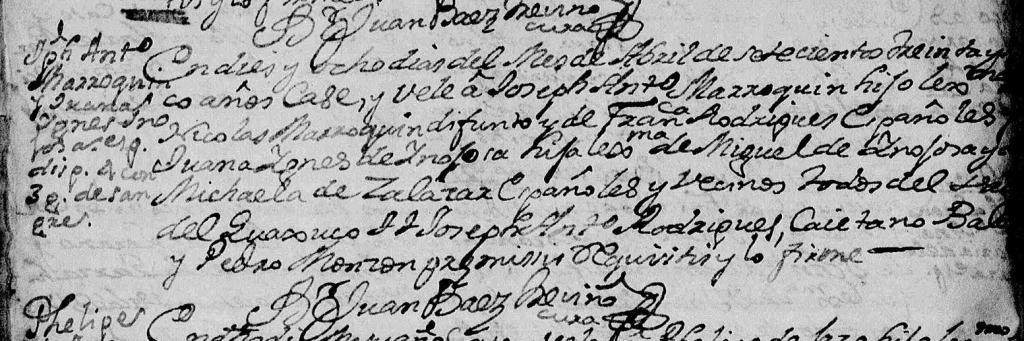 Br Juan Baez Treviño
cura
Jph Anto
Marroquin
y Juana
Ynes Yno
disp. con
3 g. de san
gre.
En dies y ocho dias del Mes de Abril de setecientos treinta y
co años Case, y Vele â Joseph Anto Marroquin hijo lexmo
Nicolas Marroquin difunto y de Franca Rodrigues Españoles y
Juana Ynes de Ynojosa hija lexma de Miguel de Ynojosa y
Michaela de Zalazar Españoles y Vecinos todos del
del Guaxuco TT Joseph Anto Rodrigues, Caietano
y Pedro Monzon premisis Requisitis y lo firme
Br Juan Baez Treviño
cura
Phelipe